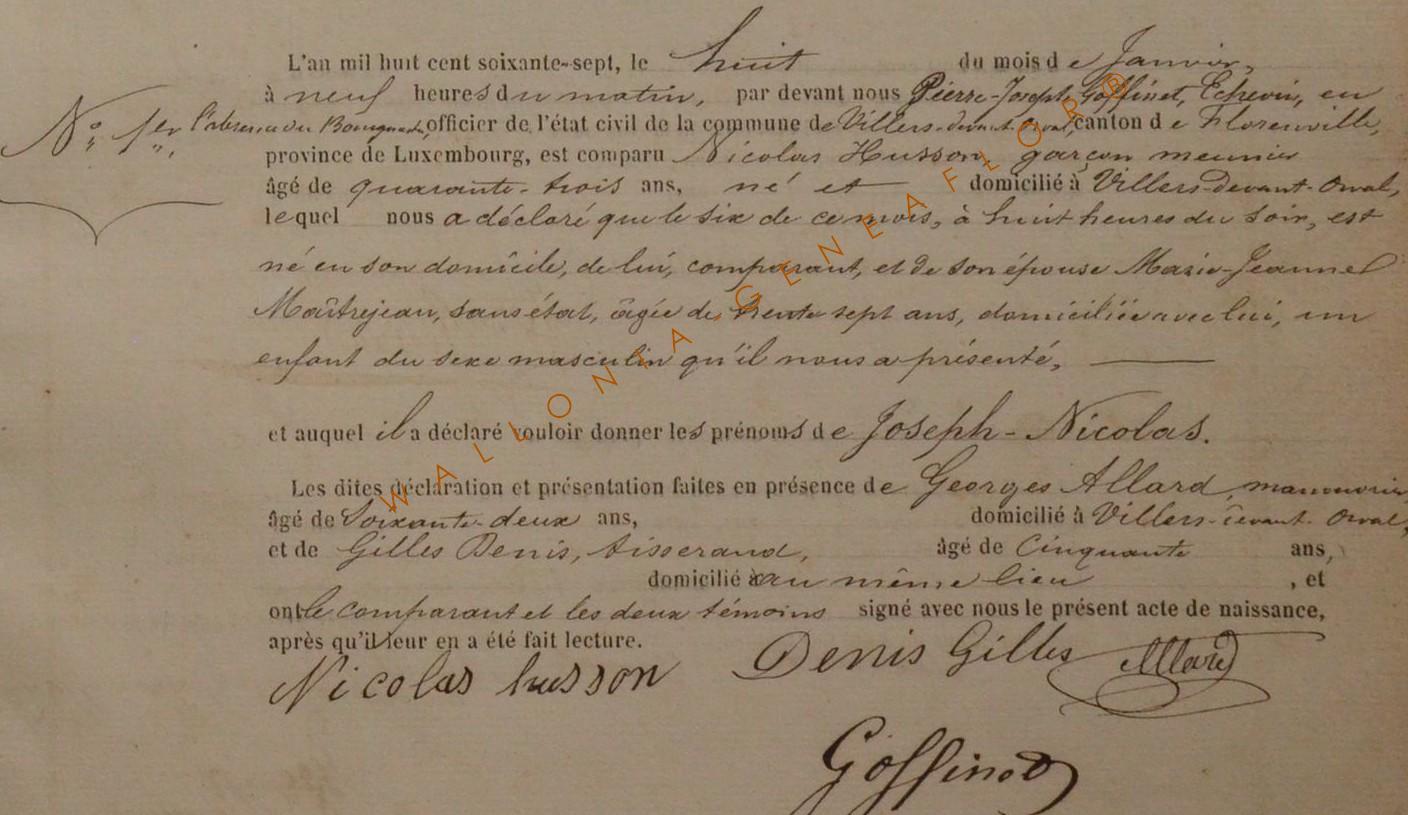 L'an mil huit cent soixante-sept, le huit du mois de Janvier,
à neuf heures du matin, par devant nous Pierre-Joseph Goffinet, Echevin, en
N° 1er l'absence du Bourgmestre, officier de l'état civil de la commune de Villers-devant-Orval, canton de Florenville,
province de Luxembourg, est comparu Nicolas Husson, garçon meunier
âgé de quarante-trois ans, né et domicilié à Villers-devant-Orval,
lequel nous a déclaré que le six de ce mois, à huit heures du soir, est
né en son domicile, de lui, comparant, et de son épouse Marie-Jeanne
Maîtrejean, sans état, âgée de trente sept ans, domiciliée avec lui, un
enfant du sexe masculin qu'il nous a présenté.
et auquel il a déclaré vouloir donner les prénoms de Joseph-Nicolas.
Les dites déclaration et présentation faites en présence de Georges Allard, manouvrier,
âgé de Soixante-deux ans, domicilié à Villers-devant-Orval,
et de Gilles Denis, tisserand, âgé de Cinquante ans,
domicilié à au même lieu, et
ont le comparant et les deux témoins signé avec nous le présent acte de naissance,
après qu'il leur en a été fait lecture.
Nicolas husson Denis Gilles Allard
Goffinet
WALLONIA GENEAFLOR®